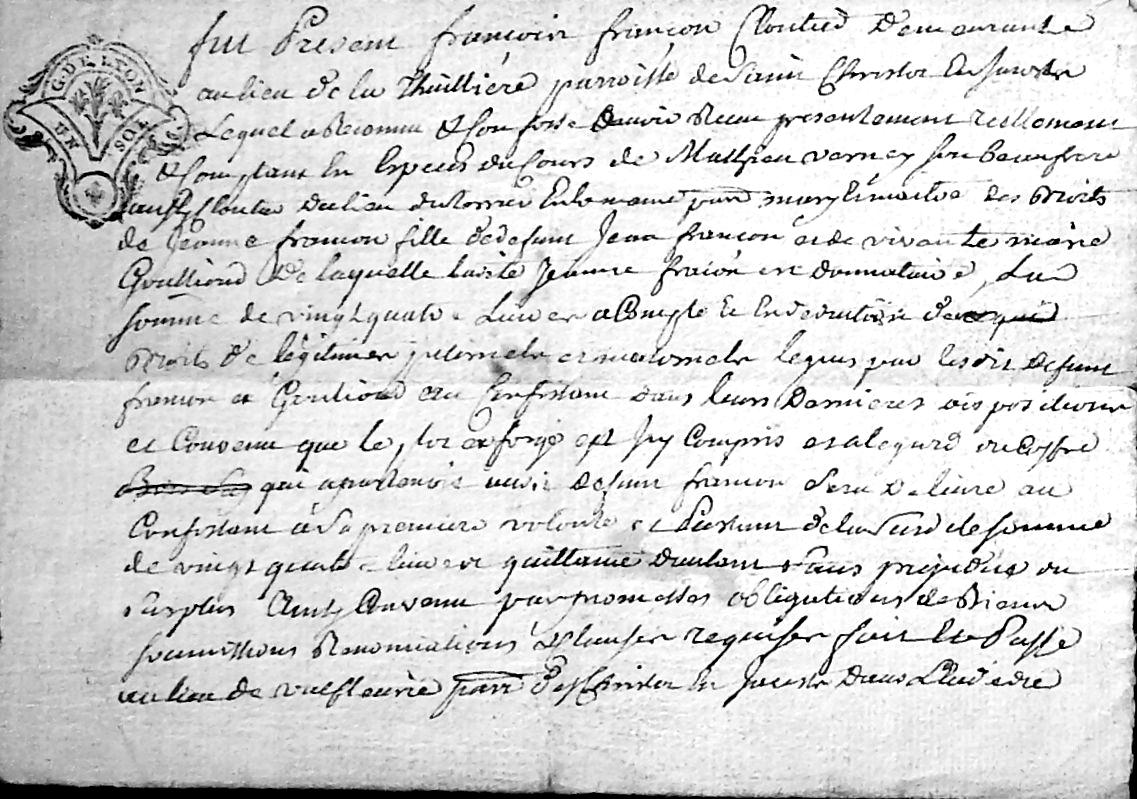 G. DE LYON
UN SOL
fut Present françois françon Cloutier Demeurante
au lieu de la Thuillière parroisse de Saint Christot En Jarest
Lequel a Reconnu & Confesse Davoir Receu presentement reellement
& Comptant En Especes du Cours de Mathieu verney son beaufrere
aussy Cloutier du lieu du parr maistre des Droits
de Jeanne françon fille de defunt Jean françon et de vivante marie
Goulliond De laquelle ladite Jeanne fraçon est donnataire, La
somme de vingt quatre Livres a Compte Et En deduction de
Droits de legitimes paternels et maternels legués par lesdits Defunt
francon et Gouliond au Confessant Dans leurs Dernieres dispositions
et Convenu que le de forge est Icy Compris et a legard du Coffre
qui apartenoit audit Defunt francon Sera Delivré au
Confessant a Sa premiere volonté et Partant de la Susdite somme
de vingt quatre livres quittance Dautant Sans prejudice du
surplus Ainsy Convenu par promesses obligations de Biens
soumissions Renonciations & Clauses requises fait Et Passé
au lieu de valfleurie parr de St Christot En Jarest Dans